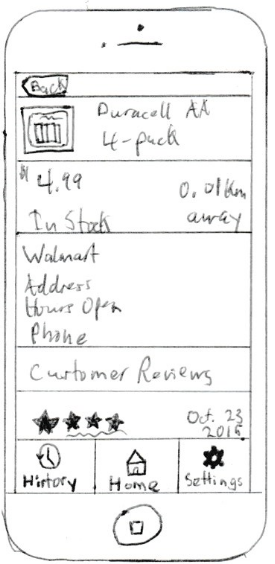 Back
Duracell AA
4-pack
$4.99
0.01km
away
In Stock
Walmart
Address
Hours Open
Phone
Customer Reviews
Oct. 23
History
Home
Settings